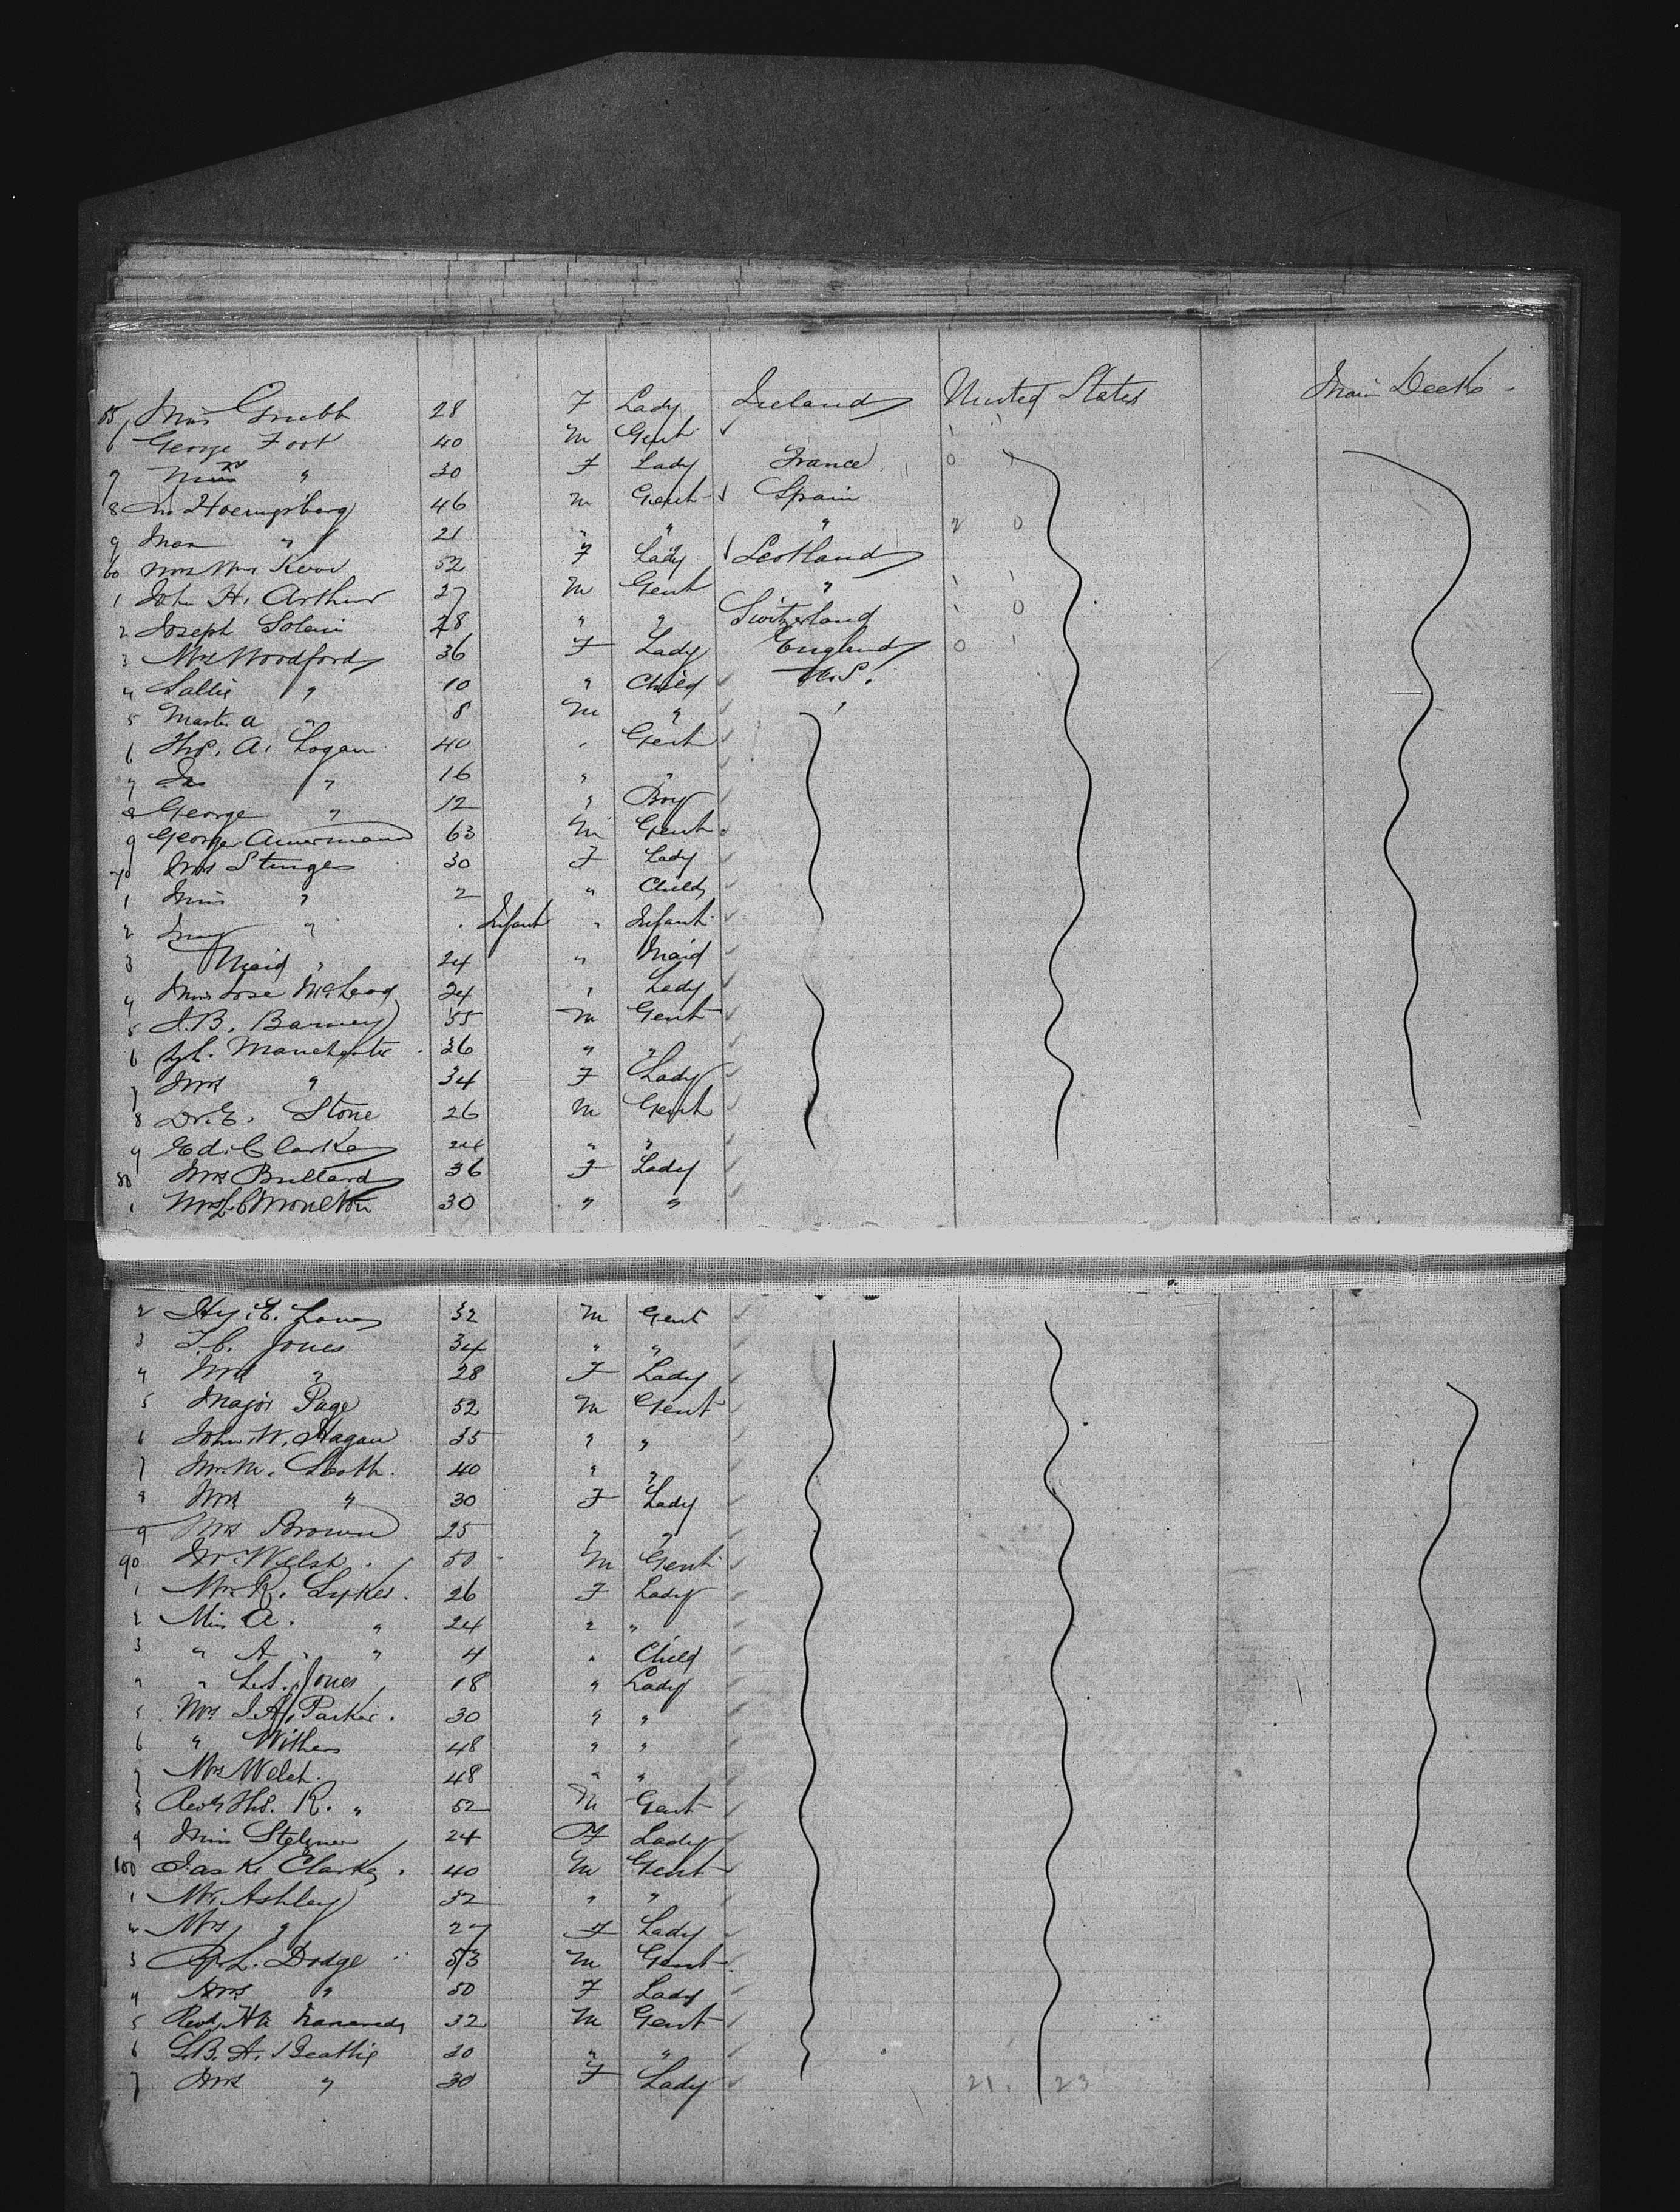 55 Miss Grubb 28 F Lady Ireland United States Main Deck
6 George Foot 40 M Gent
7 Mrs " 30 F Lady France 0 1
8 Hoenigsberg 46 M Gent Spain
9 Max " 21 " " " 2 0
60 Mrs Wm Kerr 52 F Lady Scotland
1 John H. Arthur 27 M Gent " 1 1
2 Joseph Solari 28 " " Switzerland 1 0
3 Mrs Woodford 36 F Lady England 0 1
4 Sallie " 10 " Child U.S.
5 Master A " 8 M "
6 Ths. A. Logan 40 " Gent
7 Jas " 16 " "
8 George " 12 " Boy
9 George Amermann 63 M Gent
70 Mrs Sturges 30 F Lady
1 Miss " 2 " Child
2 " Infant " Infant
3 Maid " 24 " Maid
4 Miss Rose McLeod 24 " Lady
5 J.B. Barney 55 M Gent
6 Manchester 36 " "
7 Mrs " 34 F Lady
8 Dr. E. Stone 26 M Gent
9 Ed. Clarke 24 " "
80 Mrs Bullard 36 F Lady
1 Mrs L C Moulton 30 " "
2 Hy. E. Lane 32 M Gent
3 T.C. Jones 34 " "
4 Mrs " 28 F Lady
5 Major Page 52 M Gent
6 John W. Hagan 35 " "
7 Mr. M. Booth 40 " "
8 Mrs " 30 F Lady
9 Mrs Brown 25 " "
90 Mr. Welsh 50 M Gent
1 Mrs R. Sykes 26 F Lady
2 Miss A. " 24 " "
3 " A " 4 " Child
4 " Jones 18 " Lady
5 Mrs J.A. Parker 30 " "
6 " Withers 48 " "
7 Mrs Welch 48 " "
8 Revd Ths. R. " 52 M Gent
9 Miss Stelzner 24 F Lady
100 Jas K. Clarke 40 M Gent
1 Mr. Ashley 32 " "
2 Mrs " 27 F Lady
3 L. Dodge 53 M Gent
4 Mrs " 50 F Lady
5 Revd 32 M Gent
6 L.B.A. Beattie 30 " "
7 Mrs " 30 F Lady 21. 23